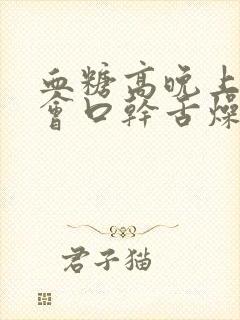 血糖高晚上
會口幹舌燥
君子猫